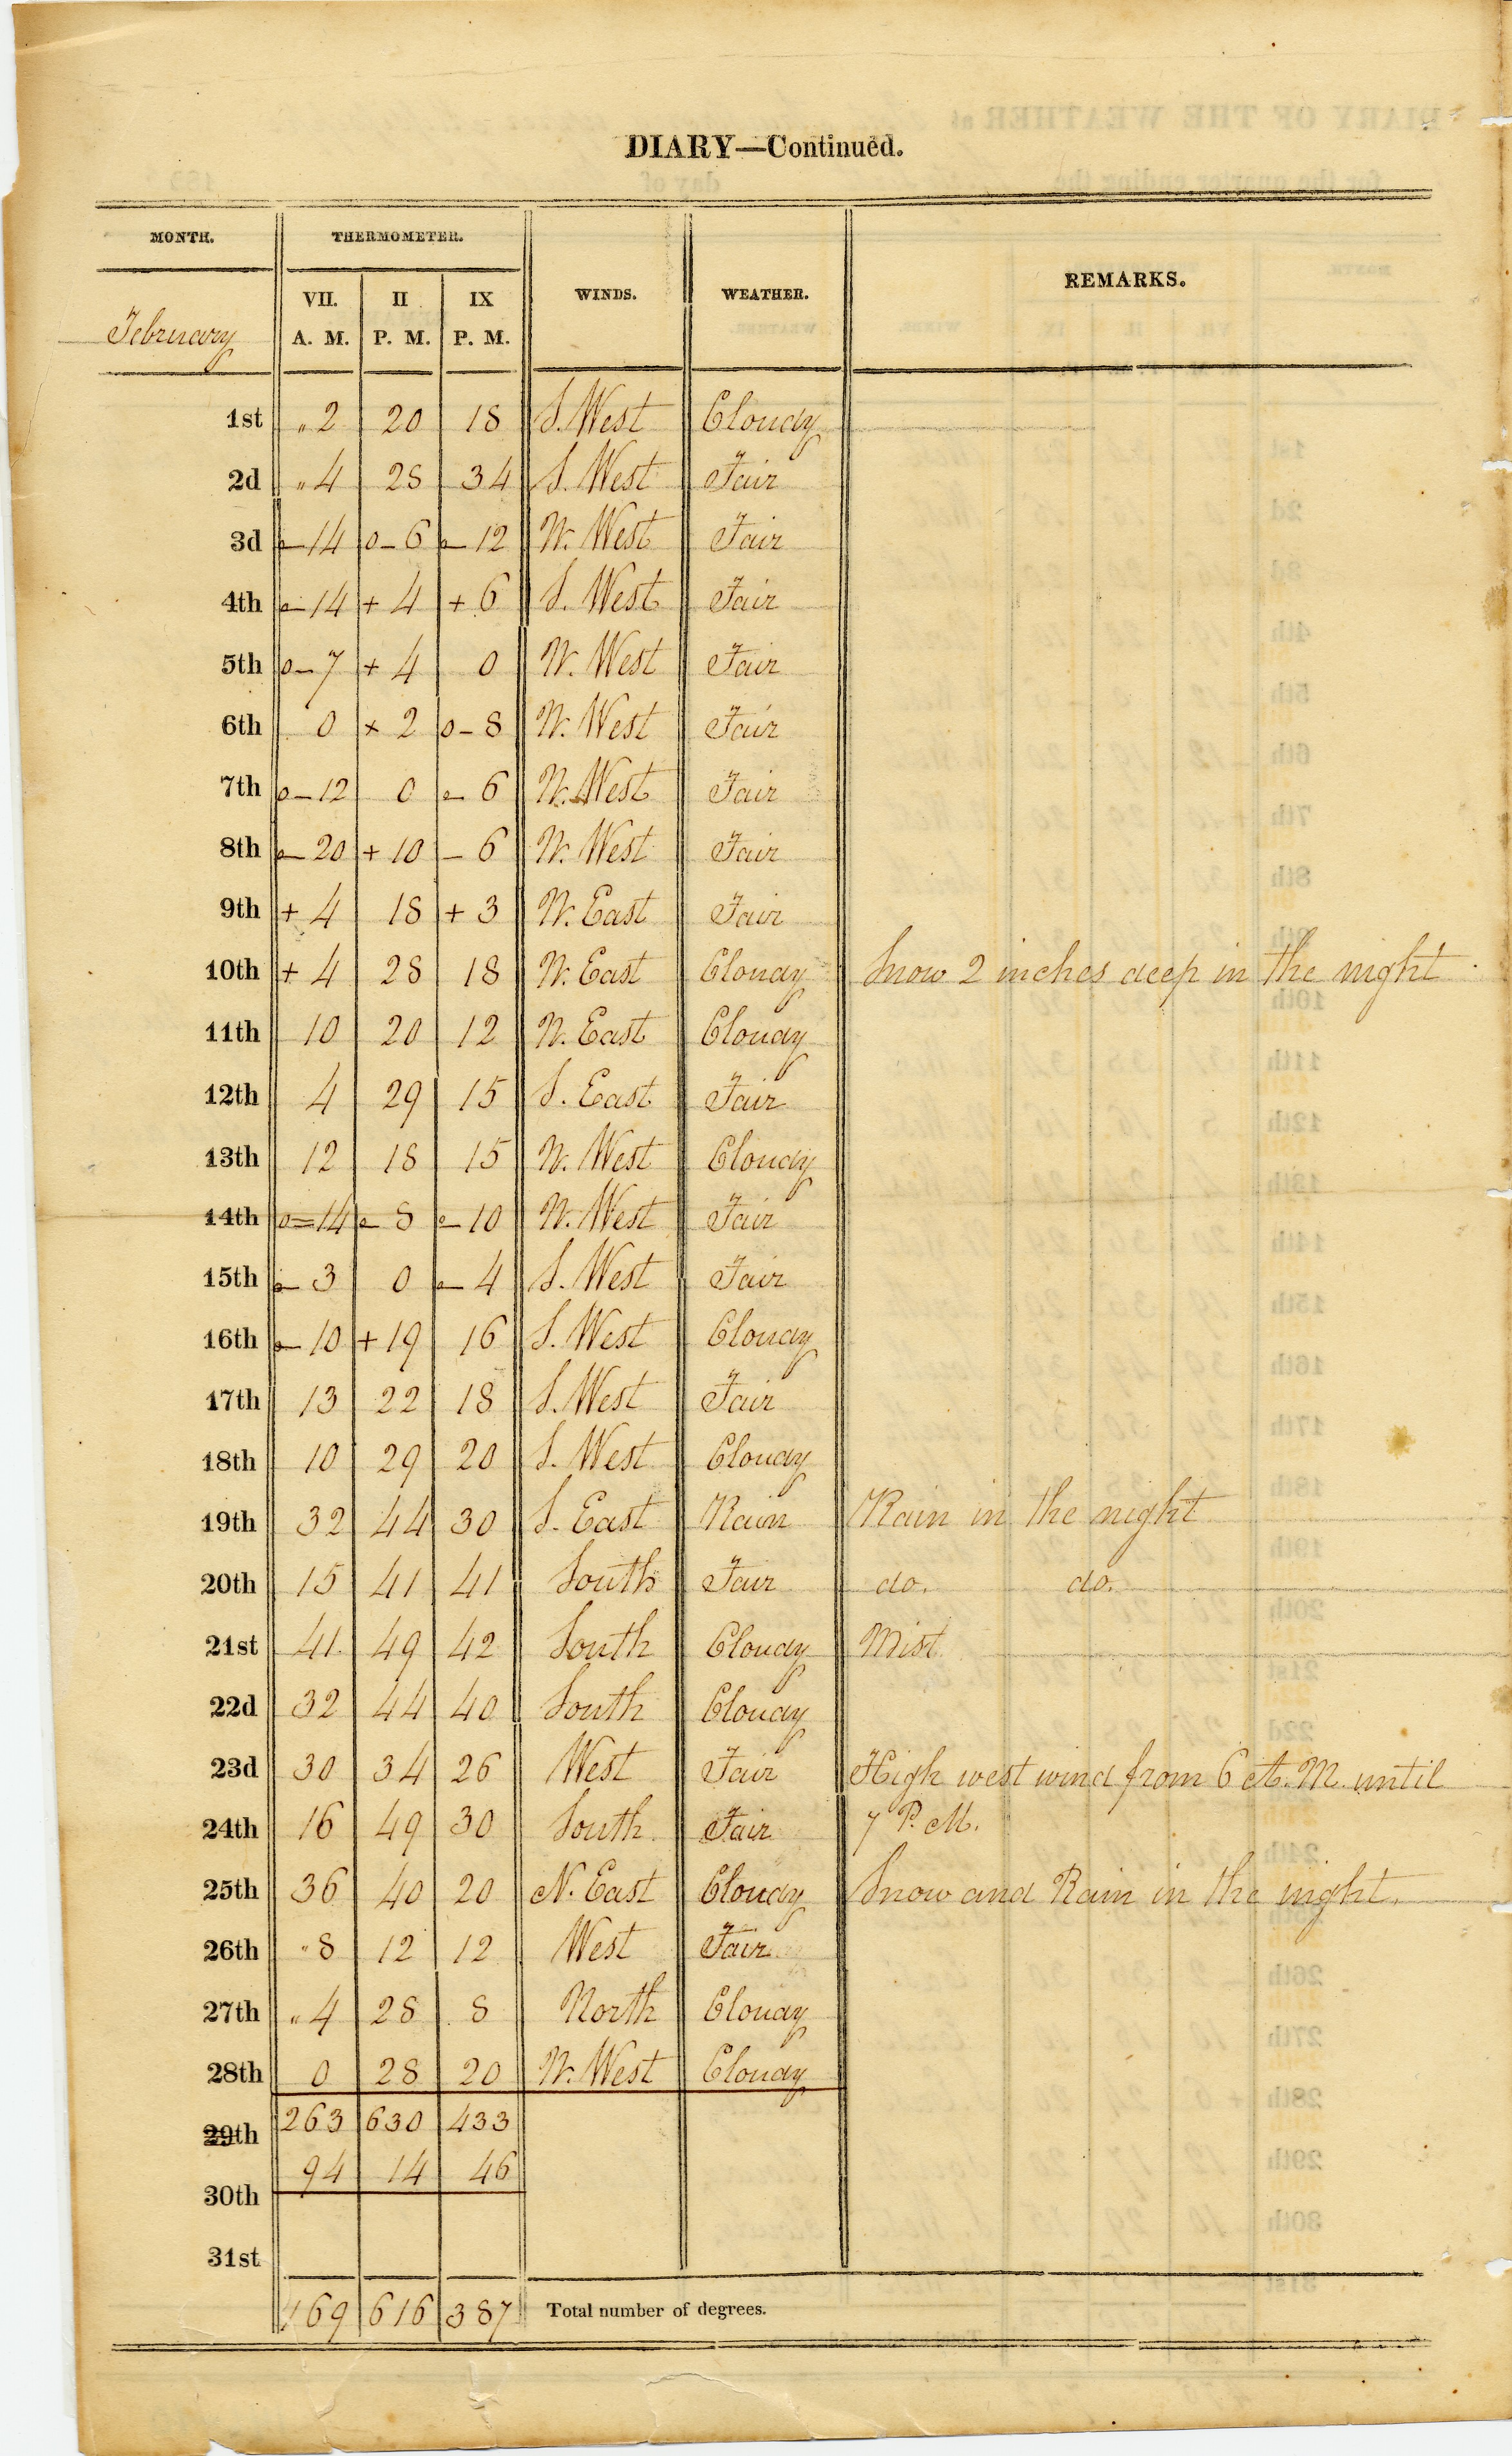 DIARY—Continued.
MONTH. THERMOMETER. WINDS. WEATHER. REMARKS.
February VII. A. M. II P. M. IX P. M.
1st " 2 20 18 S. West Cloudy
2d " 4 28 34 S. West Fair
3d 0–14 0–6 0–12 N. West Fair
4th 0–14 + 4 + 6 S. West Fair
5th 0–7 + 4 0 N. West Fair
6th 0 + 2 0–8 N. West Fair
7th 0–12 0 0–6 N. West Fair
8th 0–20 + 10 – 6 N. West Fair
9th + 4 18 + 3 N. East Fair
10th + 4 28 18 N. East Cloudy Snow 2 inches deep in the night
11th 10 20 12 N. East Cloudy
12th 4 29 15 S. East Fair
13th 12 18 15 N. West Cloudy
14th 0=14 0–8 0–10 N. West Fair
15th 0–3 0 0–4 S. West Fair
16th 0–10 +19 16 S. West Cloudy
17th 13 22 18 S. West Fair
18th 10 29 20 S. West Cloudy
19th 32 44 30 S. East Rain Rain in the night
20th 15 41 41 South Fair do. do.
21st 41 49 42 South Cloudy Mist
22d 32 44 40 South Cloudy
23d 30 34 26 West Fair High west wind from 6 A. M. until
24th 16 49 30 South Fair 7 P. M.
25th 36 40 20 N. East Cloudy Snow and Rain in the night.
26th " 8 12 12 West Fair
27th " 4 28 8 North Cloudy
28th 0 28 20 N. West Cloudy
29th 263 630 433
94 14 46
30th
31st
169 616 387 Total number of degrees.